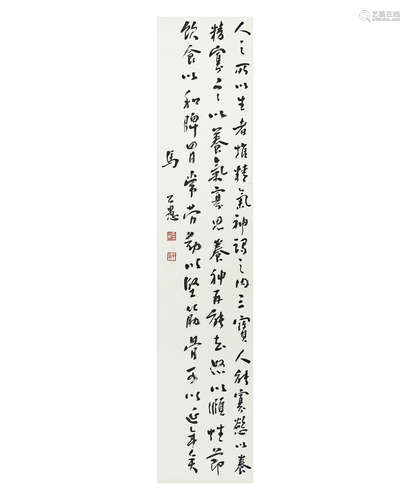 人之所以生者惟精氣神謂之內三寶人能寡慾以養
精寡言以養氣寡思養神再能去怒以頤性節
飲食以和脾胃常勞動以堅筋骨可以延年矣
馬公愚